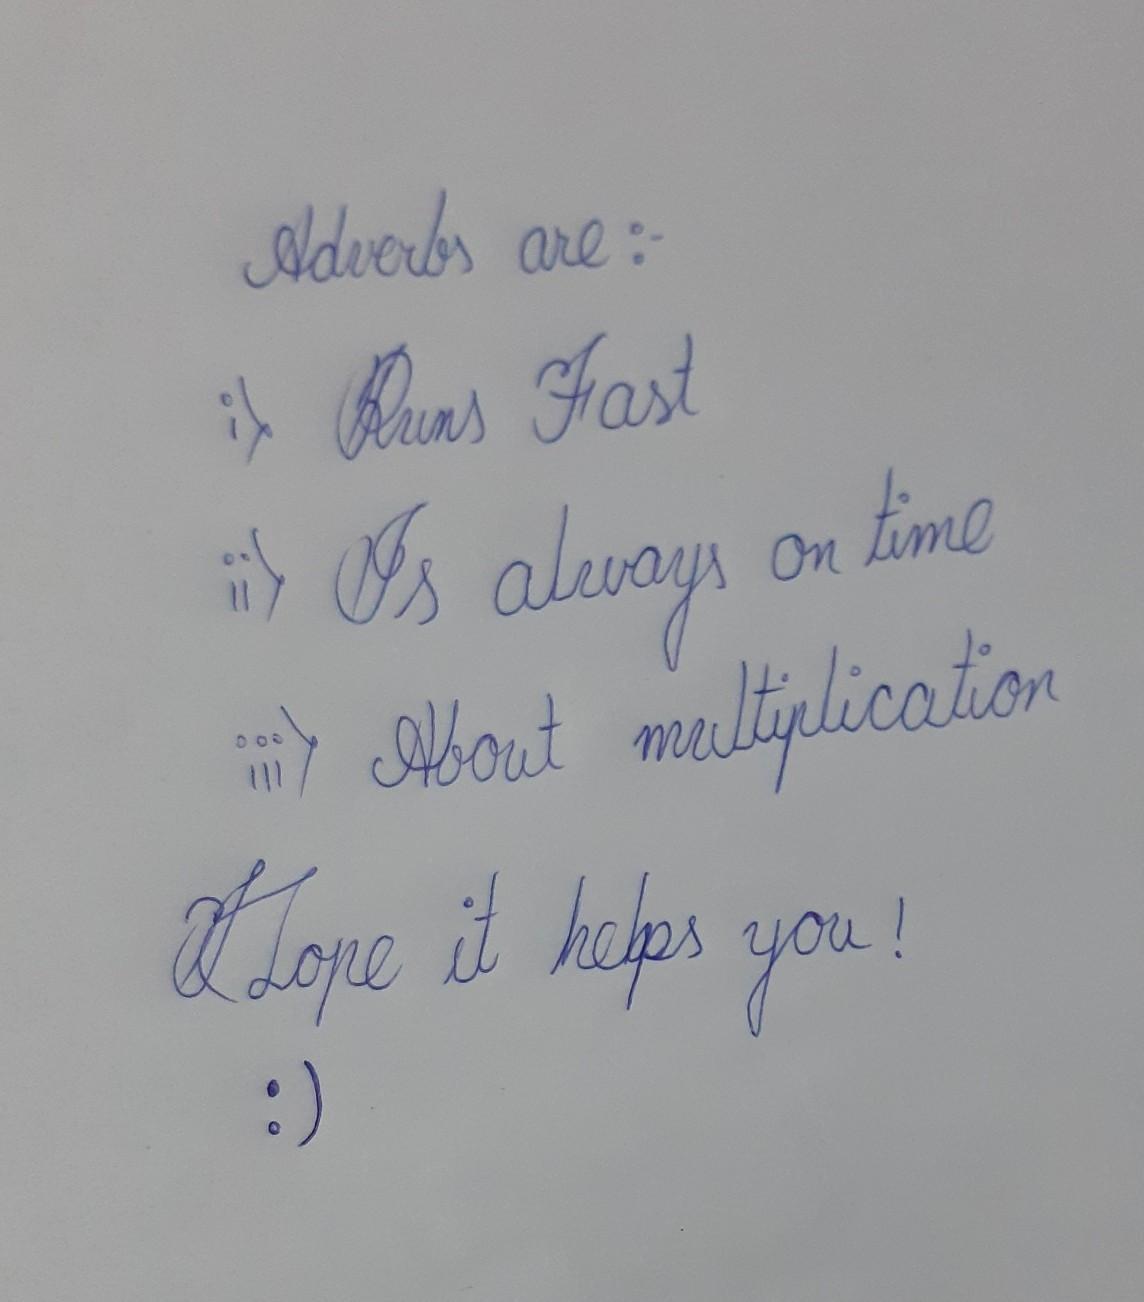 Adverbs are :-
i) Runs Fast
ii) Is always on time
iii) About multiplication
Hope it helps you!
:)